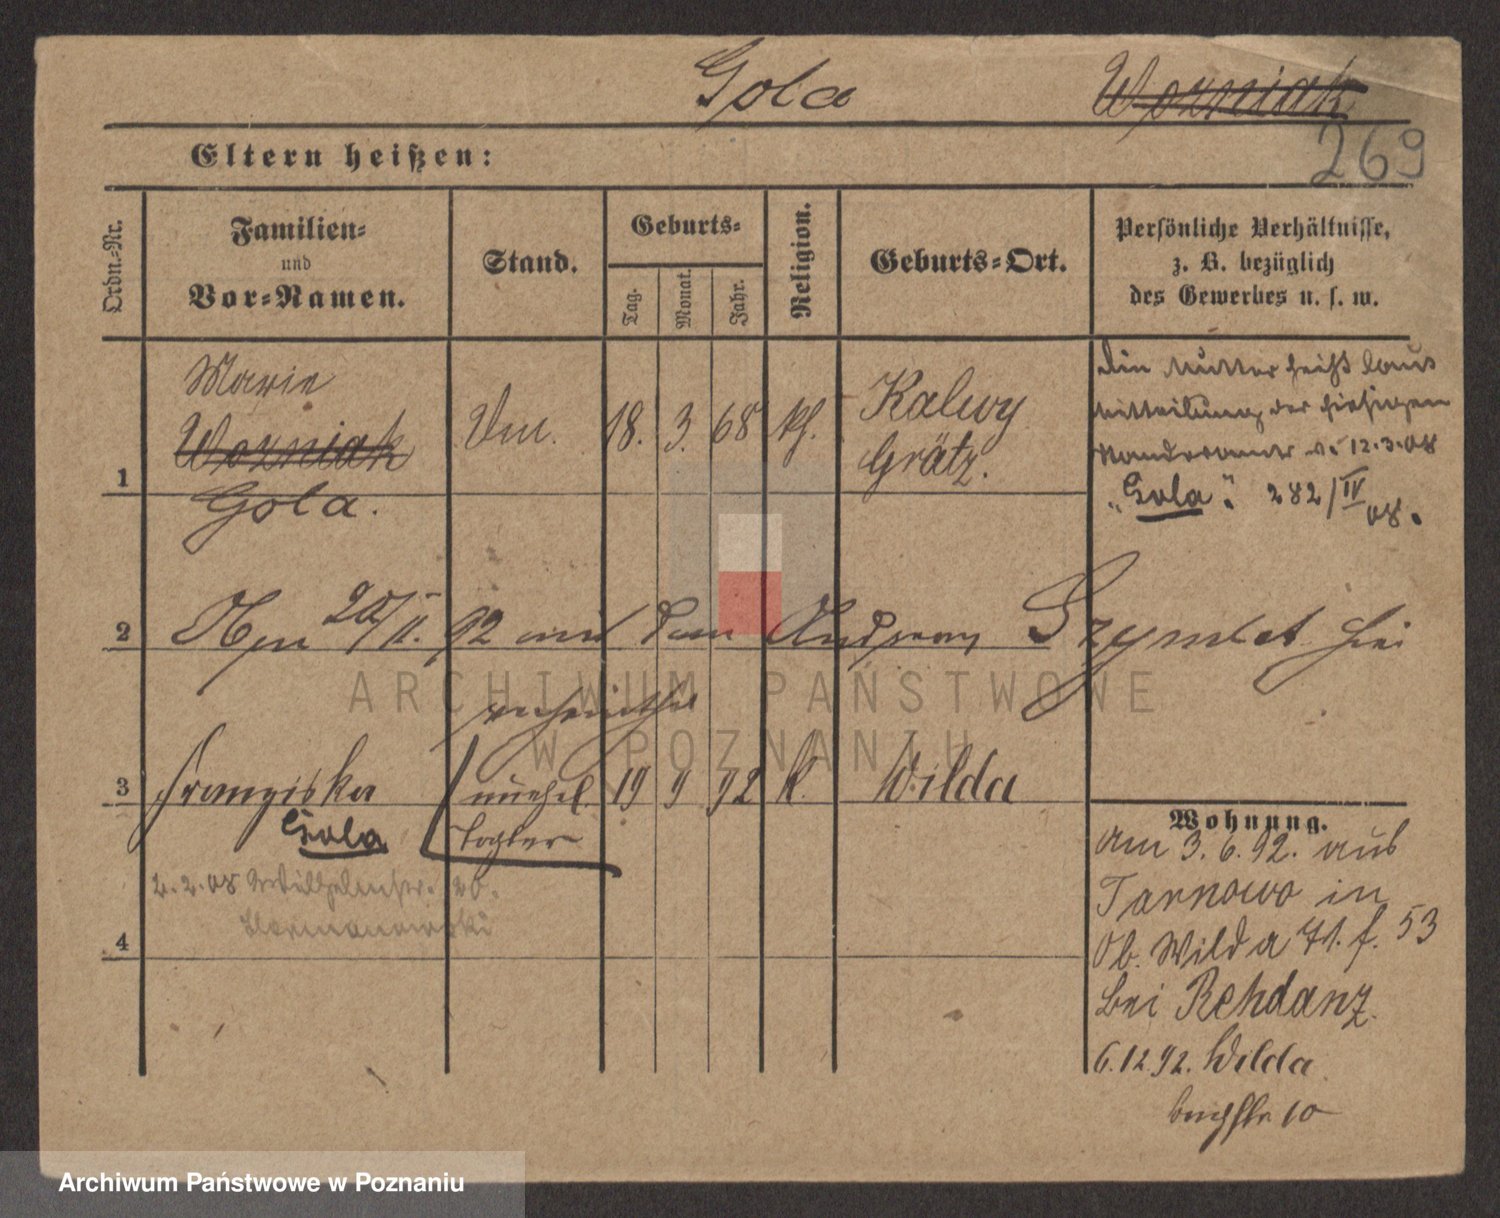 Gola Wozniak
269
Eltern heißen:
Ordn.-Nr.
Familien-
und
Vor-Namen.
Stand.
Geburts-
Tag.
Monat.
Jahr.
Religion.
Geburts-Ort.
Persönliche Verhältnisse,
z. B. bezüglich
des Gewerbes u. s. w.
1
Marie
Wozniak
Gola.
18. 3. 68 kh.
Kalwy
Grätz.
Die Mutter heißt laut
Mitteilung der hiesigen
Standesamts v. 12.3.08
„Gola". 282/IV 08.
2
20/II. 92 mit dem Andreas Szymlet hier
verheirathet
3
Franziska
Gola
unehel.
Tochter
19 9 92 k. Wilda
2.2.08 Wilhelmstr. 20.
4
Wohnung.
Am 3. 6. 92. aus
Tarnowo in
Ob. Wilda 71. f. 53
bei Rehdanz.
6.12.92. Wilda
10
ARCHIWUM PAŃSTWOWE
W POZNANIU
Archiwum Państwowe w Poznaniu